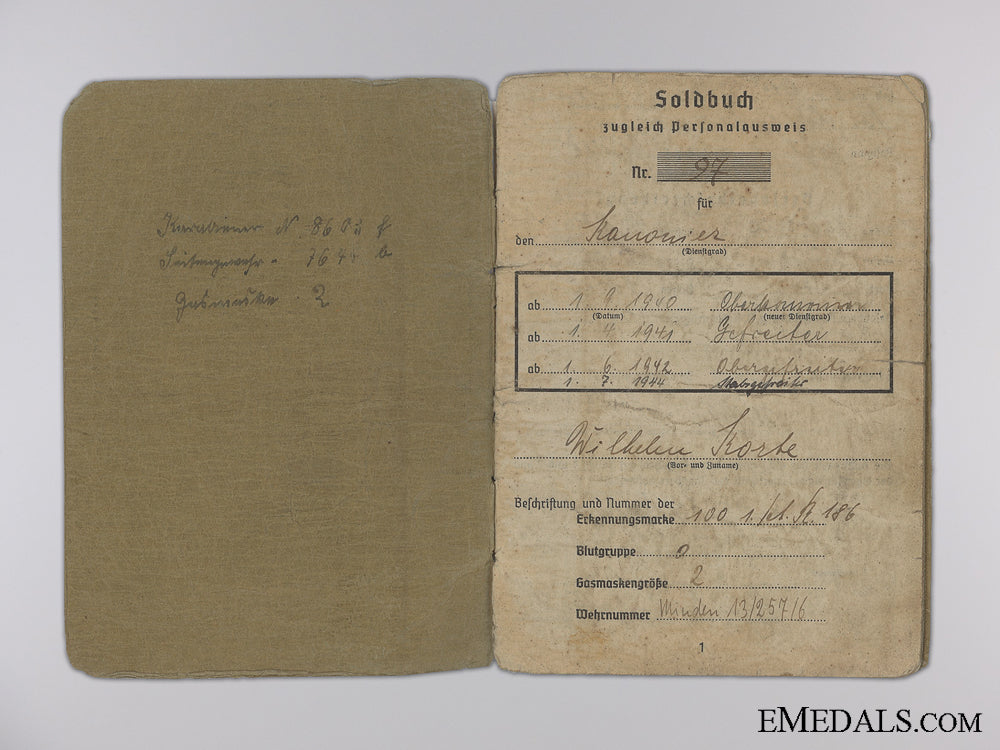 Karabiener N
Seitengewehr -
Gasmaske 2
Soldbuch
zugleich Personalausweis
Nr. 97
für
den Kanonier
(Dienstgrad)
ab 1. 9. 1940 Oberkanonier
(Datum) (neuer Dienstgrad)
ab 1. 4. 1941 Gefreiter
ab 1. 6. 1942 Obergefreiter
1. 7. 1944 Stabsgefreiter
Wilhelm Korte
(Vor- und Zuname)
Beschriftung und Nummer der
Erkennungsmarke 100 1. 186
Blutgruppe 0
Gasmaskengröße 2
Wehrnummer Minden 13/257/6
1
EMEDALS.COM